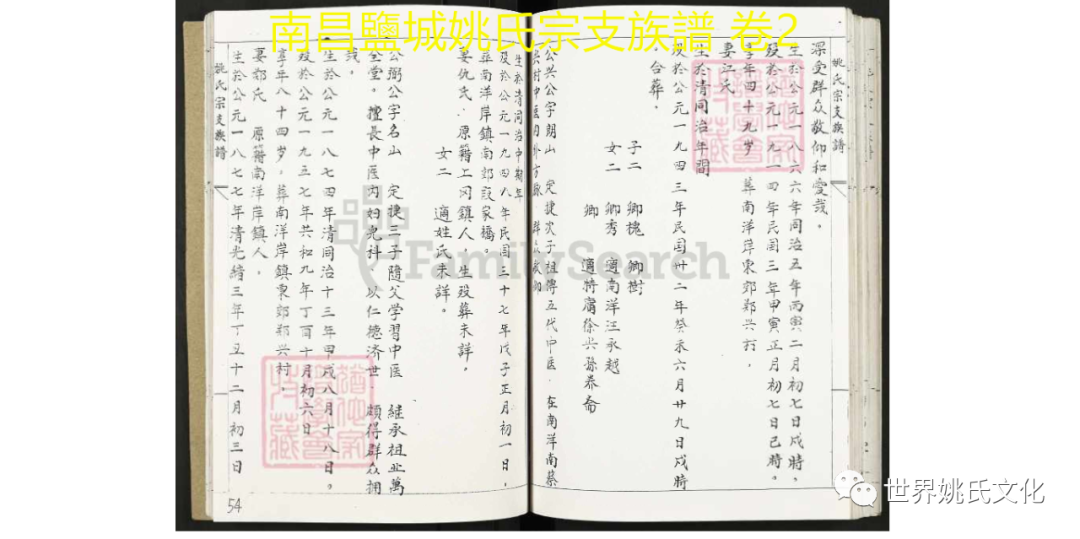 南昌鹽城姚氏宗支族譜 卷2
姚氏宗支族譜
深受群众敬仰和愛戴。
生於公元一八六六年同治五年丙寅二月初七日戌時，
殁於公元一九一四年民国三年甲寅正月初七日已時。
享年四十九岁 葬南洋岸東郊郑兴村．
妻江氏
生於清同治年間
殁於公元一九四三年民国卅二年癸未六月廿九日戌時
合葬．
子二 卿槐 卿樹
女二 卿秀 適南洋汪承越
卿 適特庸徐
公兴公字朗山 定捷次子祖傳五代中医．在南洋南蔡
生於清同治中期年
殁於公元一九四八年民国三十七年戊子正月初一日，
葬南洋岸鎮南郊 家橋。
妻仇氏．原籍上冈鎮人．生殁葬未詳，
女二 適姓氏未詳。
公弼公字名山 定捷三子隨父学習中医 継承祖业萬
全堂。擅長中医内妇児科．以仁德济世．頗得群众拥
戴．
生於公元一八七四年清同治十三年甲戌八月十八日。
殁於公元一九五七年共和九年丁酉十月初六日
享年八十四岁．葬南洋岸鎮東郊郑兴村．
妻郭氏 原籍南洋岸鎮人．
生於公元一八七七年清光緒三年丁丑十二月初三日
姚氏宗支族譜
54
FamilySearch
世界姚氏文化